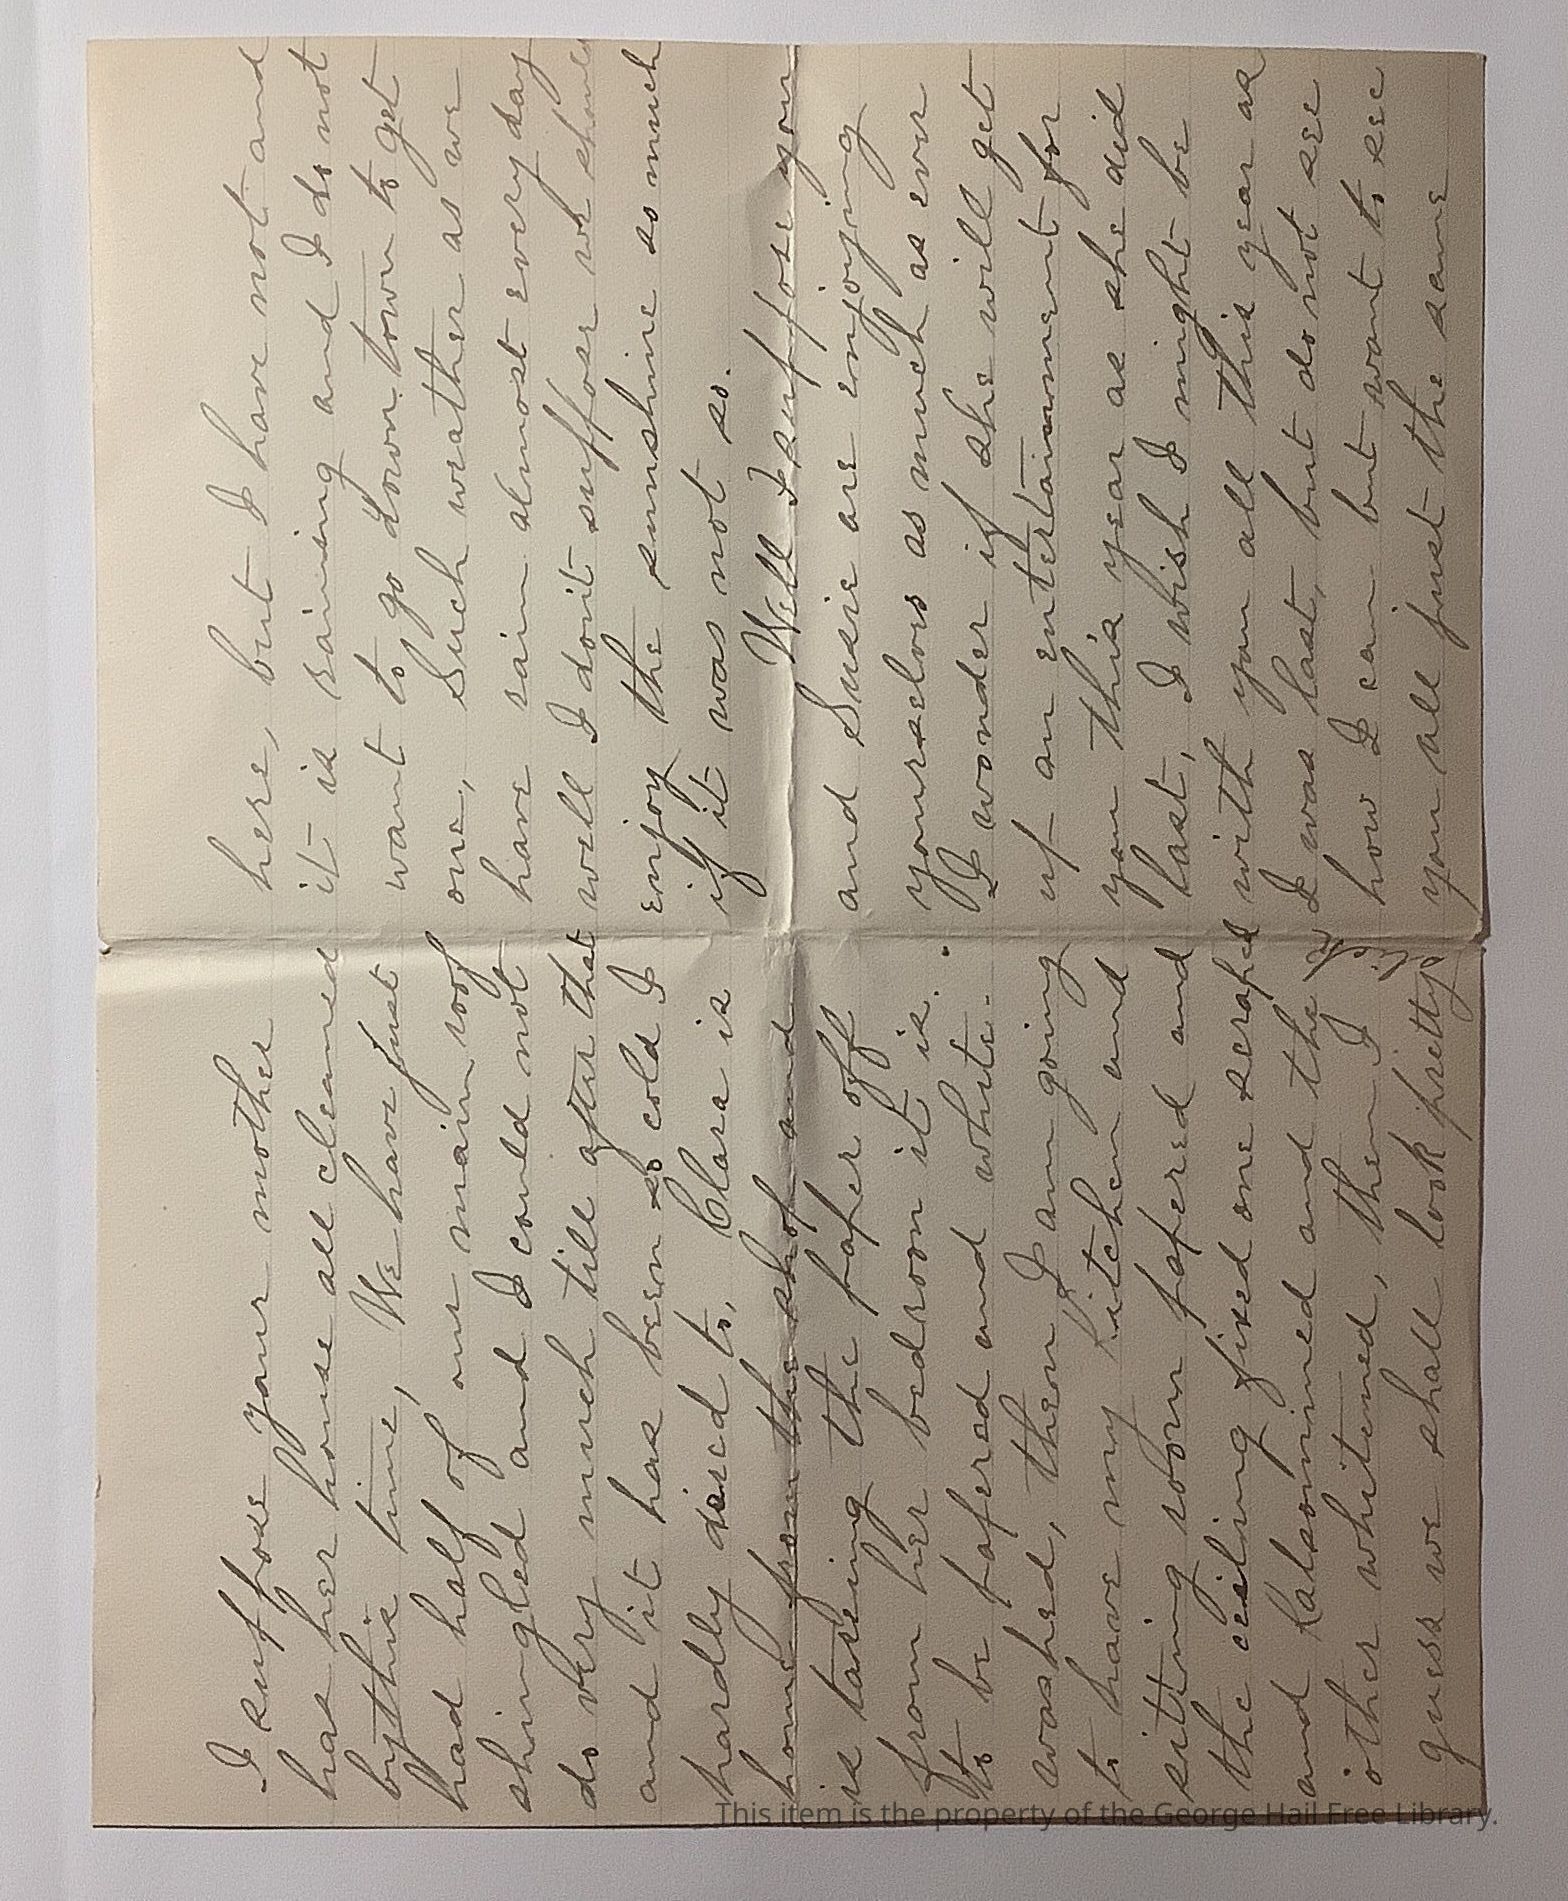 I suppose your mother
has her house all cleaned
bythis time, We have just
had half of our main roof
shingled and I could not
do very much till after that
and it has been so cold I
hardly dared to, Clara is
home from the shop and
is taking the paper off
from her bedroom it is.
to be papered and white-
washed, then I am going
to have my kitchen and
sitting room papered and
the ceiling fixed one scraped
and Kalsomined and the
other whitened, then I
guess we shall look pretty
here, but I have not and
it is raining and I do not
want to go down town to get
one, Such weather as we
have rain almost every day
well I don't suppose we should
enjoy the sunshine so much
if it was not so.
Well I suppose you
and Susie are enjoying
yourselves as much as ever
I wonder if she will get
up an entertainment for
you this year as she did
last, I wish I might be
with you all this year as
I was last, but do not see
how I can but want to see
you all just the same
This item is the property of the George Hail Free Library.